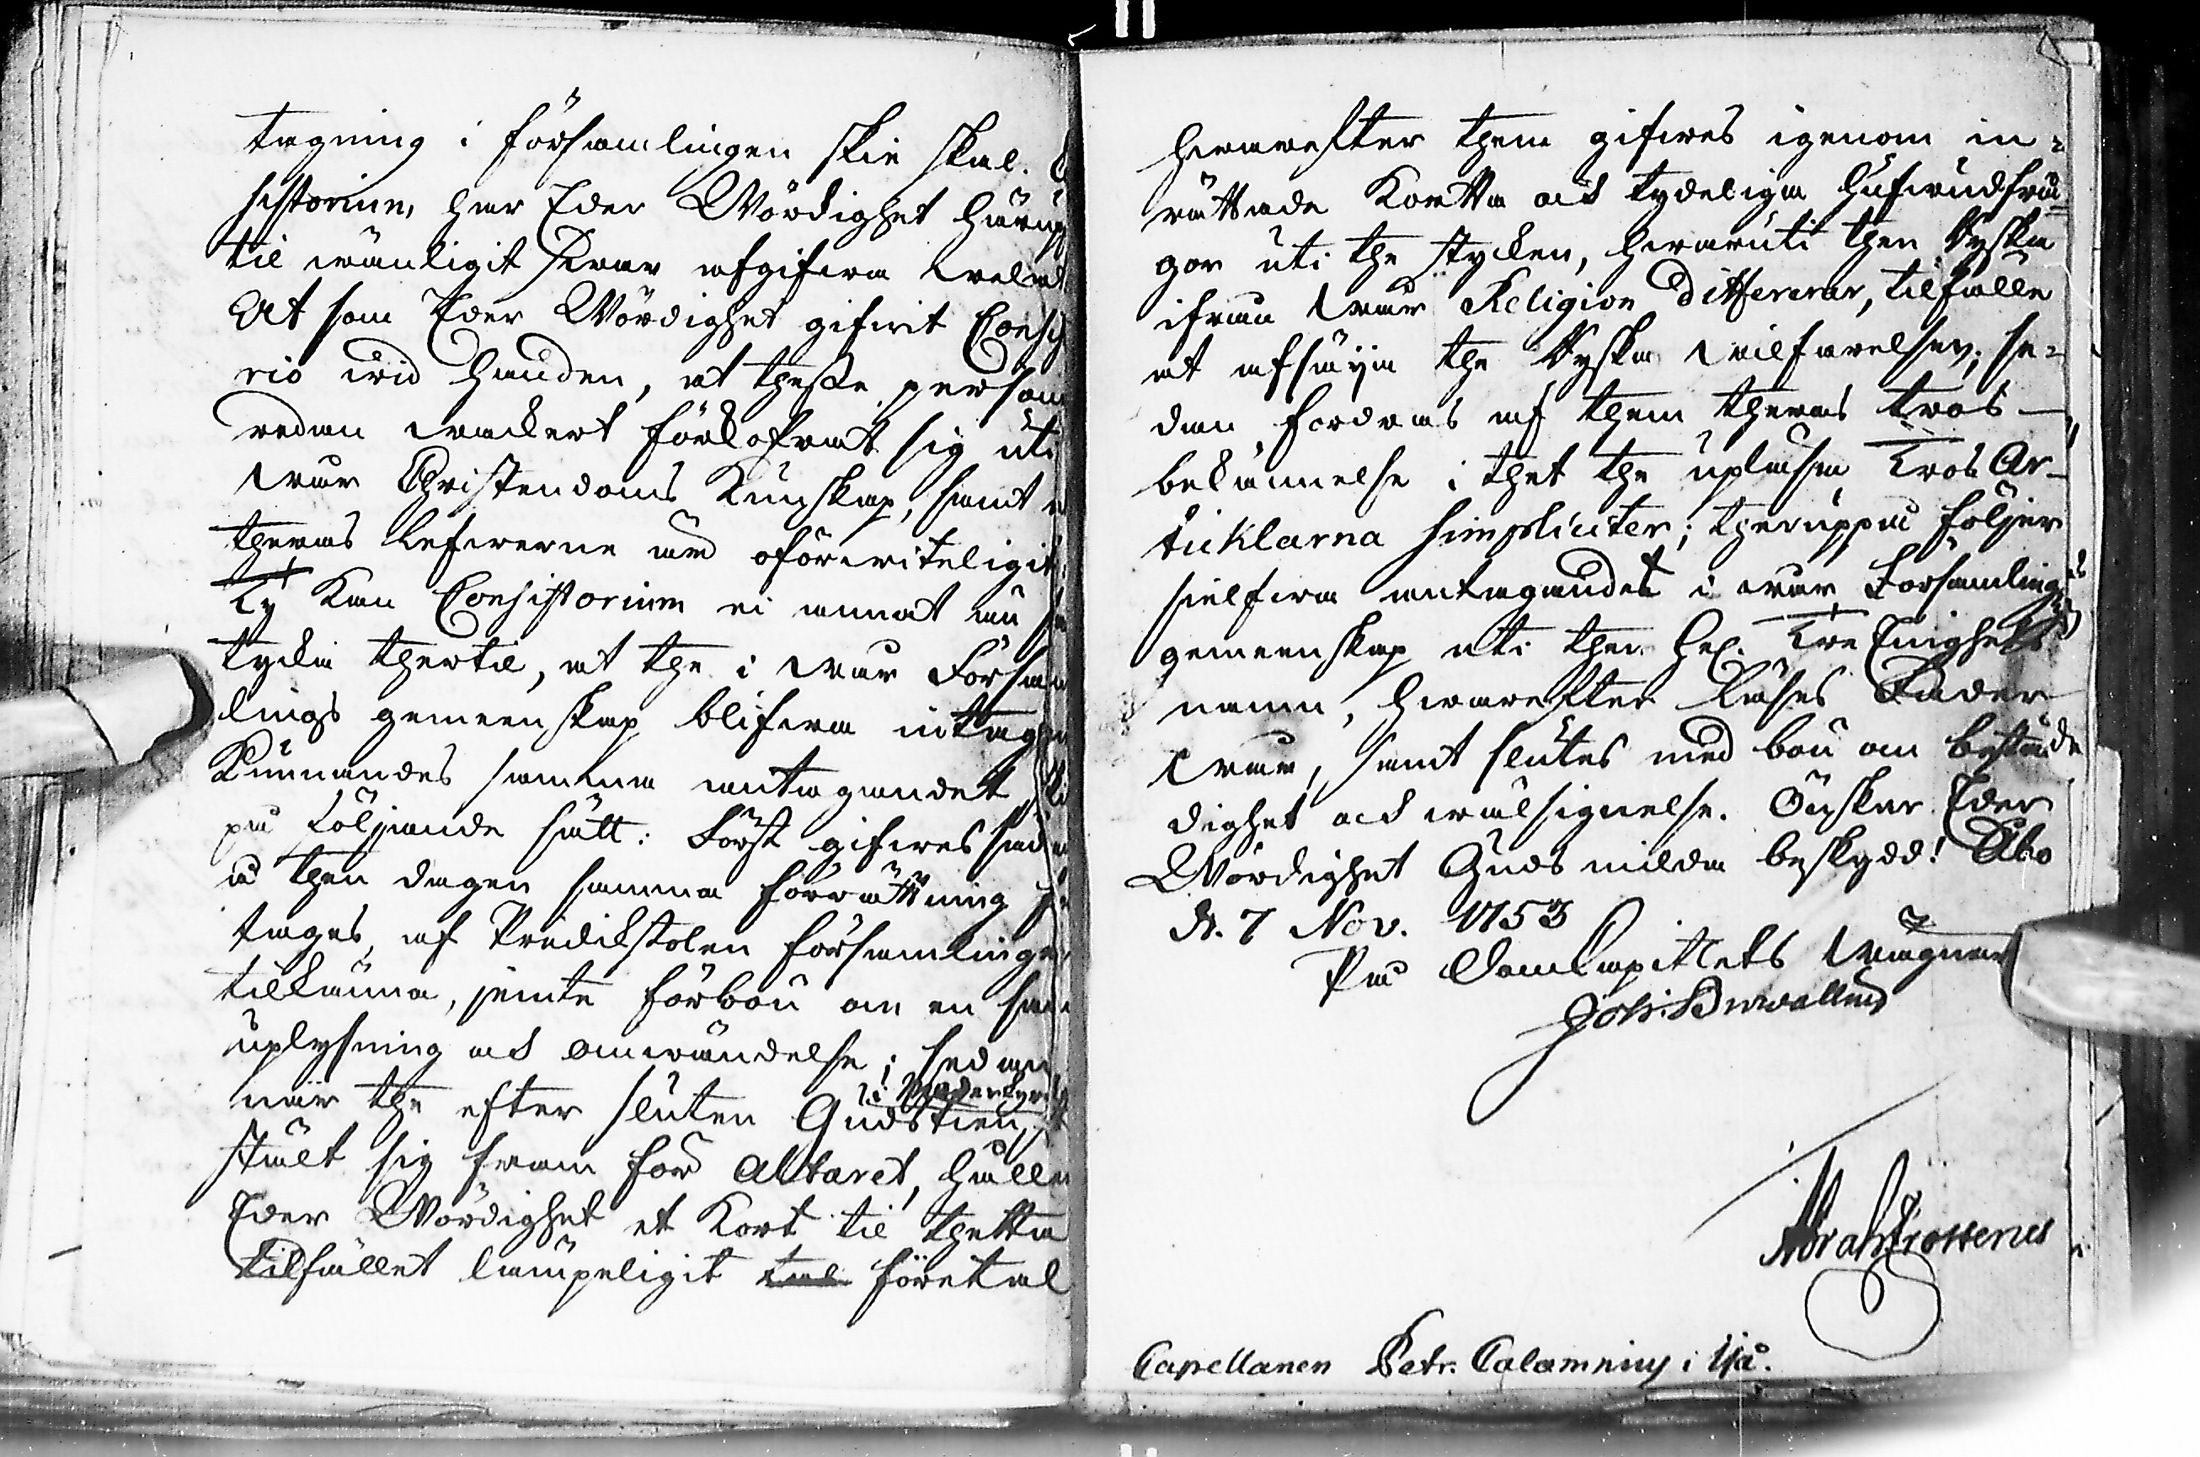 tagning i församlingen skie skal.
sistorium har Eder Wördighet härup
til wänligit swar afgifwa welat
At som Eder Wördighet gifwit Consi
rio wid handen, at thesse person
redan wackert förkofrat sig uti
wår Christendoms Kunskap, samt
theras lefwerne med oförwiteligit;
Ty kan Consistorium ei annat än
tyckia thertil, at the i wår Försam
lings gemeenskap blifwa intagn
Kunnandes samma antagandet
på följande sätt: Först gifwes
å then dagen samma förrättning
tages, af Predikstolen församlinge
tilkänna, jemte förbön om en san
uplysning och omwändelse; sedan
i Moderkyrk
när the efter sluten Gudstien
stält sig fram för Altaret, håller
Eder Wördighet et Kort til thetta
tilfället lämpeligit tal företal
hwarefter them gifwes igenom in-
rättade Korta och tydeliga hufwudfrå-
gor uti the stycken, hwaruti then Ryska
ifrån wår Religion differerar, tilfälle
at afsäija the Ryska willfarelser; se-
dan fordras af them theras tros-
bekännelse i thet the uplæsa tros Ar-
ticklarna simpliciter; theruppå följer
sielfwa antagandet i wår Församlings
gemeenskap uti then Hel. Tre Enighets
namn, hwarefter läses Fader
wår, samt slutes med bön om bestän-
dighet och wälsignelse. Önskar Eder
Wördighet Guds milda beskydd! Åbo
d. 7 Nov. 1753
På DomCapitlets wägnar
Joh: Browallius
Abrah Frosterus
Capellanen Petr. Calamnius i Ijå.